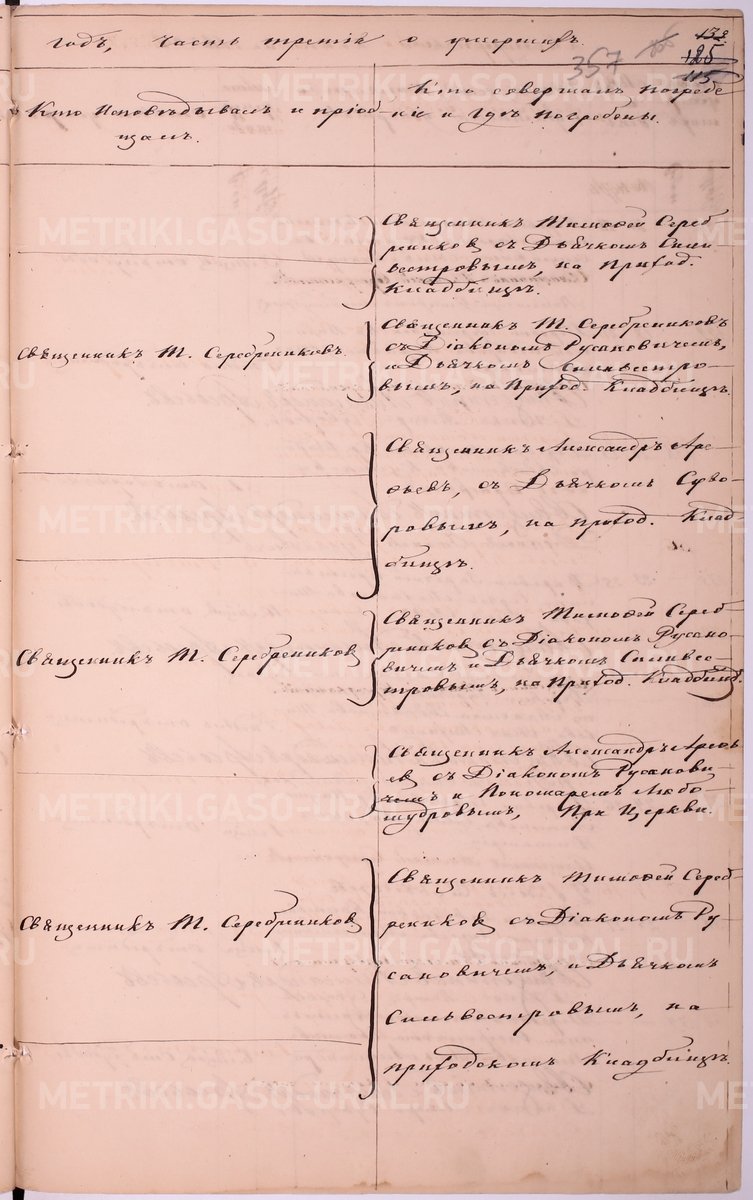 годъ, часть третія о умершихъ.
138
125
115
357
Кто исповѣдывалъ и пріоб-
щалъ.
Кто совершалъ погребе-
ніе и гдѣ погребены.
Священникъ Тимофей Сереб-
рениковъ съ Дьячкомъ Силь-
вестровымъ, на Приход.
Кладбищѣ.
Священникъ Т. Серебрениковъ.
Священникъ Т. Серебрениковъ
съ Діакономъ Русановичемъ,
и Дьячкомъ Сильвестро-
вымъ, на Приход. Кладбищѣ.
Священникъ Александръ Аре-
фьевъ, съ Дьячкомъ Суво-
ровымъ, на приход. Клад-
бищѣ.
Священникъ Т. Серебрениковъ
Священникъ Тимофей Сереб-
рениковъ съ Діакономъ Русано-
вичемъ и Дьячкомъ Сильвес-
тровымъ, на Приход. Кладбищ.
Священникъ Александръ Арефь-
евъ съ Діакономъ Русанови-
чемъ и Пономаремъ Любо-
мудровымъ, При Церкви.
Священникъ Т. Серебрениковъ
Священникъ Тимофей Сереб-
рениковъ съ Діакономъ Ру-
сановичемъ, и Дьячкомъ
Сильвестровымъ, на
приходскомъ Кладбищѣ.
METRIKI.GASO-URAL.RU